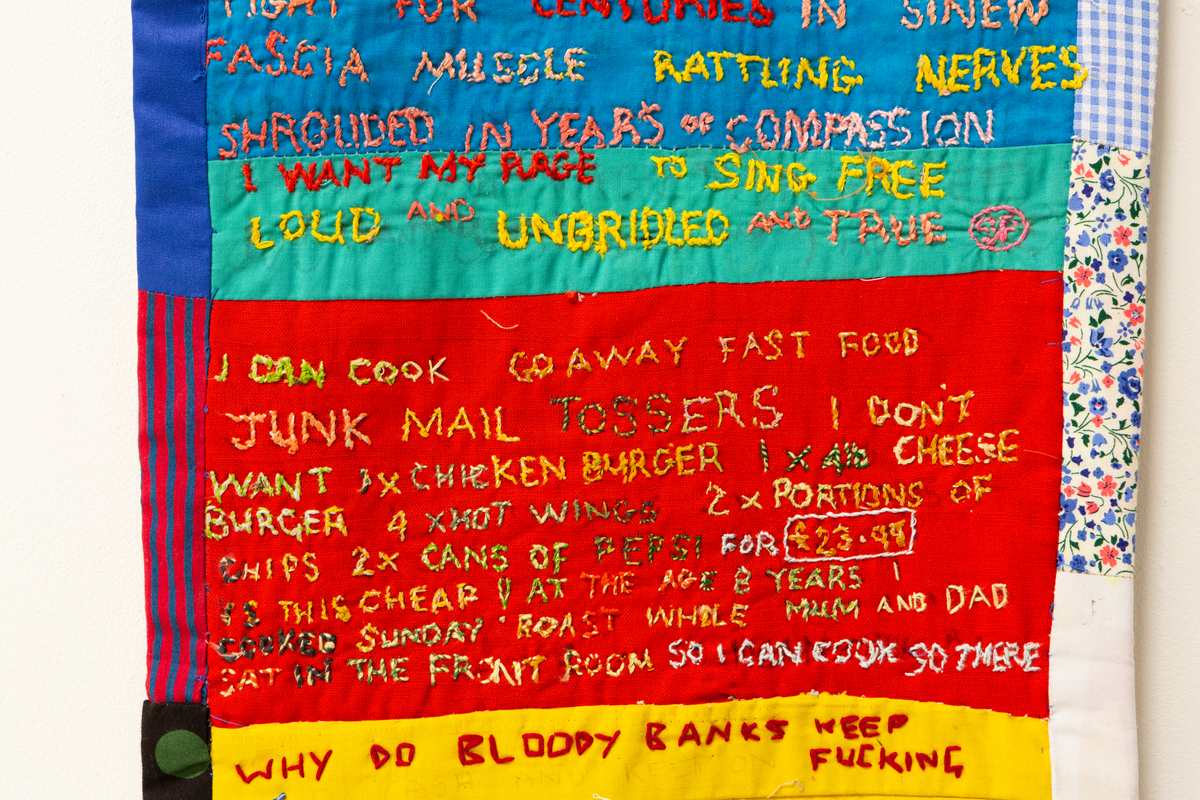 FIGHT FOR CENTURIES IN SINEW
FASCIA MUSCLE RATTLING NERVES
SHROUDED IN YEARS OF COMPASSION
I WANT MY RAGE TO SING FREE
LOUD AND UNBRIDLED AND TRUE SF
I CAN COOK GO AWAY FAST FOOD
JUNK MAIL TOSSERS I DON'T
WANT 1X CHICKEN BURGER 1 X 1/4 lb CHEESE
BURGER 4 X HOT WINGS 2 X PORTIONS OF
CHIPS 2X CANS OF PEPSI FOR £23.98
IS THIS CHEAP ? AT THE AGE 8 YEARS I
COOKED SUNDAY ROAST WHILE MUM AND DAD
SAT IN THE FRONT ROOM SO I CAN COOK SO THERE
WHY DO BLOODY BANKS KEEP
FUCKING